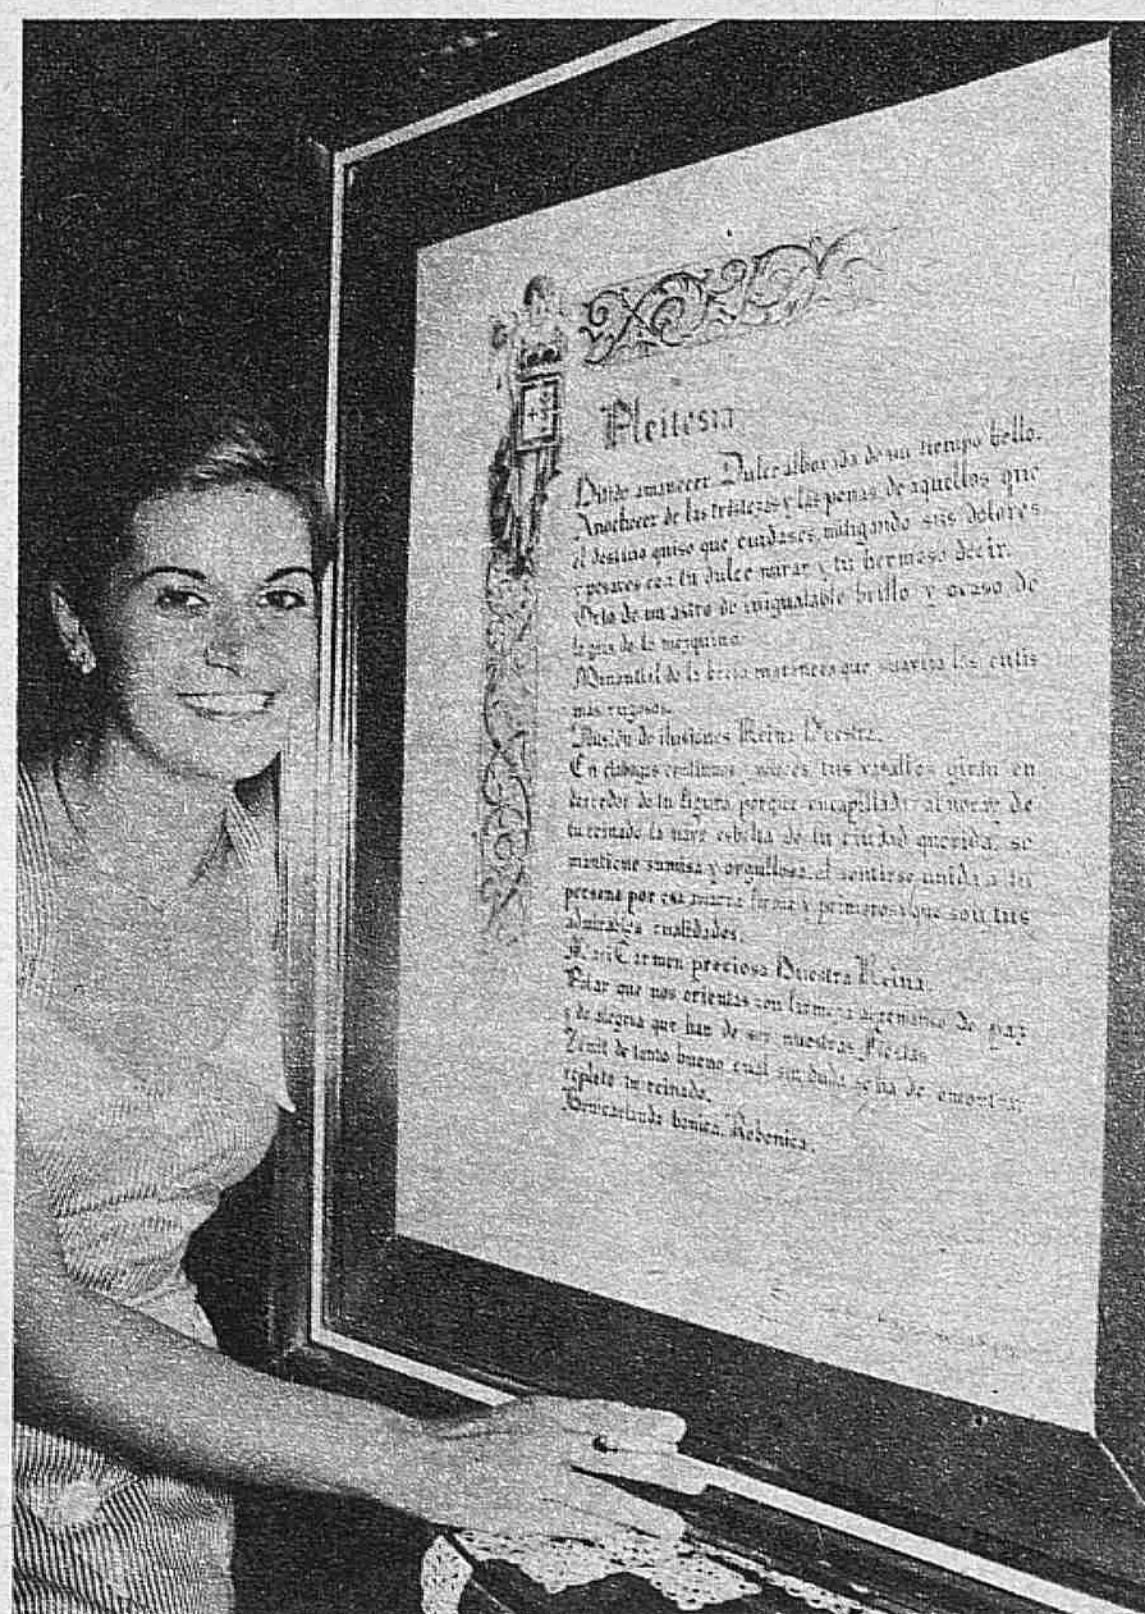 Pleitesia
amanecer Dulce alborada de un tiempo bello.
Anochecer de las tristezas y las penas de aquellos que
el destino quiso que cuidases, mitigando sus dolores
y pesares con tu dulce mirar y tu hermoso decir.
Orto de un astro de inigualable brillo y ocaso de
lo gris de lo mezquino
Manantial de la que suaviza los cutis
mas rugosos.
Ilusión de ilusiones Reina Nuestra.
En continuos tus vasallos giran en
derredor de tu figura, porque encapillada al noray de
tu reinado la nave esbelta de tu ciudad querida, se
mantiene sumisa y orgullosa al sentirse unida a tu
persona por esa amarra firme y primorosa que son tus
admirables cualidades.
Mari Carmen preciosa Nuestra Reina.
que nos orientas con firmeza de paz
y de alegria que han de ser nuestras Fiestas
Zenit de tanto bueno cual sin duda se ha de encontrar
repleto tu reinado.
Benicarlanda bonica, Rebonica.